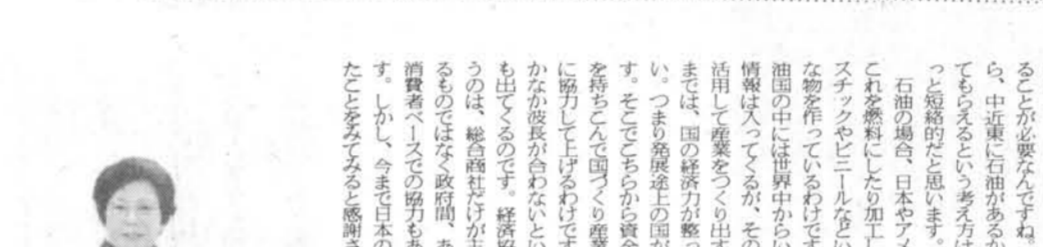 ることが必要なんですね。
ら、中近東に石油があるか
てもらえるという考え方
っと短絡的だと思います。
石油の場合、日本やアメ
これを燃料にしたり加工し
スチックやビニールなどい
な物を作っているわけです
油国の中には世界中からい
情報は入ってくるが、その
活用して産業をつくり出す
までは、国の経済力が整っ
い。つまり発展途上の国が
す。そこでこちらから資金
を持ちこんで国づくり産業
に協力して上げるわけです
かなか波長が合わないとい
も出てくるのです。経済協
うのは、総合商社だけが主
るものではなく政府間、あ
消費者ベースでの協力もあ
す。しかし、今まで日本の
たことをみてみると感謝さ